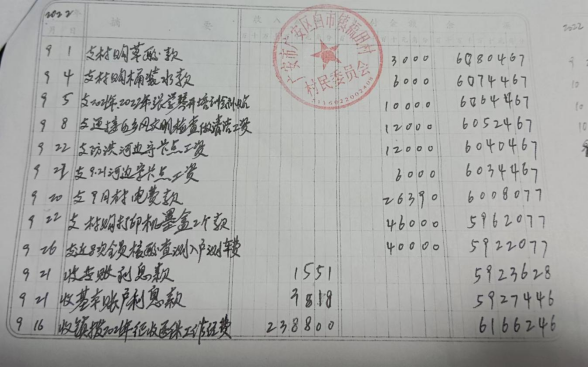 2022
9 1 支村购草酸款 3000 6080467
9 4 支村购桶装水款 6000 6074467
9 5 支2021年,2022年 10000 6064467
9 8 支迎接 文明检查做清洁工资 12000 6052467
9 22 支防洪河边守卡点工资 12000 6040467
9 21 支9.21河边守卡点工资 6000 6034467
9 20 支9月村电费款 26390 6008077
9 22 支村购打印机墨盒2个款 46000 5962077
9 26 支近8次全员核酸查测入户 车费 40000 5922077
9 21 收专账利息款 1551 5923628
9 21 收基本账户利息款 3818 5927446
9 16 收镇拨2021年征收医保工作经费 238800 6166246
广安市广安区白市镇 田村
村民委员会
2022